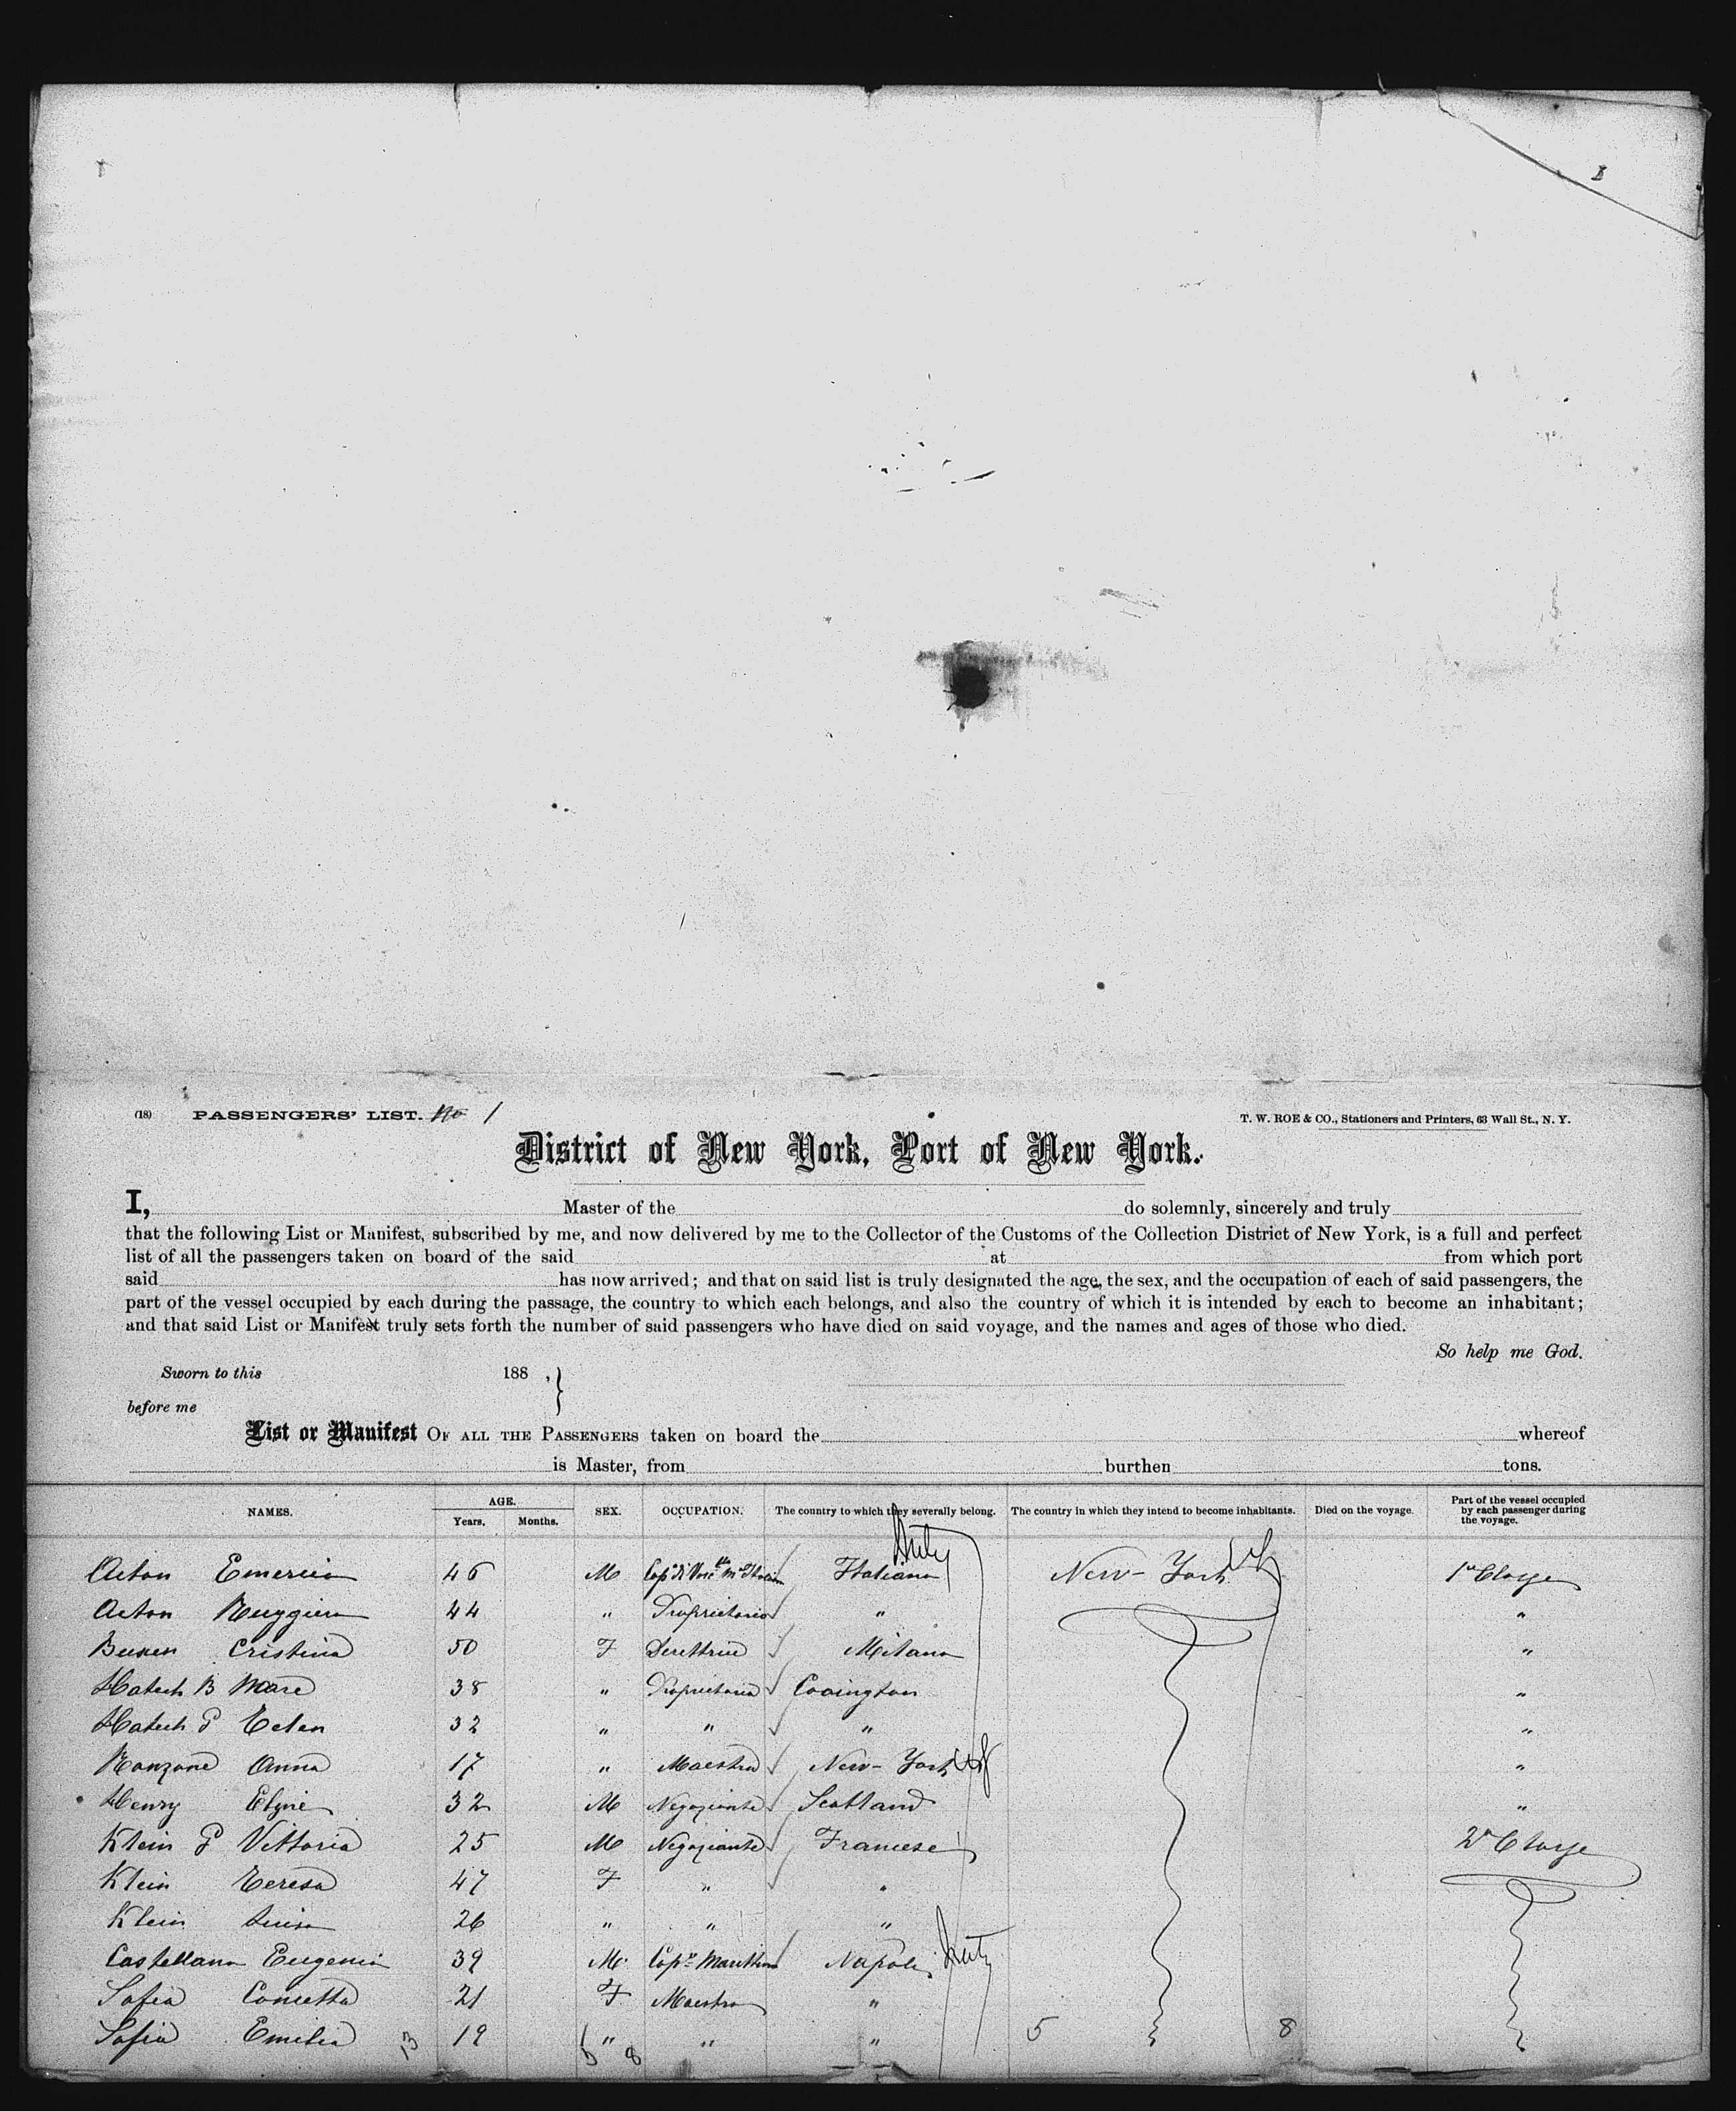 (18) PASSENGERS' LIST. No 1
T. W. ROE & CO., Stationers and Printers, 63 Wall St., N. Y.
District of New York, Port of New York.
I, Master of the do solemnly, sincerely and truly
that the following List or Manifest, subscribed by me, and now delivered by me to the Collector of the Customs of the Collection District of New York, is a full and perfect
list of all the passengers taken on board of the said at from which port
said has now arrived; and that on said list is truly designated the age, the sex, and the occupation of each of said passengers, the
part of the vessel occupied by each during the passage, the country to which each belongs, and also the country of which it is intended by each to become an inhabitant;
and that said List or Manifest truly sets forth the number of said passengers who have died on said voyage, and the names and ages of those who died.
So help me God.
Sworn to this 188 ,
before me
List or Manifest OF ALL THE PASSENGERS taken on board the whereof
is Master, from burthen tons.
NAMES. AGE. Years. Months. SEX. OCCUPATION. The country to which they severally belong. The country in which they intend to become inhabitants. Died on the voyage. Part of the vessel occupied by each passenger during the voyage.
Italy
Acton Emerico 46 M Italiana New-York 1a Classe
Acton Ruggiero 44 " Proprietario " "
Cristina 50 F Direttrice Milano "
Hatech B Mare 38 " Proprietaria Covington "
Hatech P Eelen 32 " " " "
Ranzone Anna 17 " Maestra New-York "
Henry 32 M Negoziante Scotland "
Klein P Vittorio 25 M Negoziante Francese 2a Classe
Klein Teresa 47 F " "
Klein Luisa 26 " " "
Castellano Eugenio 39 M. Capo Maritimo Napoli Italy
Sofia Concetta 21 F Maestra "
Sofia Emilia 13 19 " " " 5 8
5 8